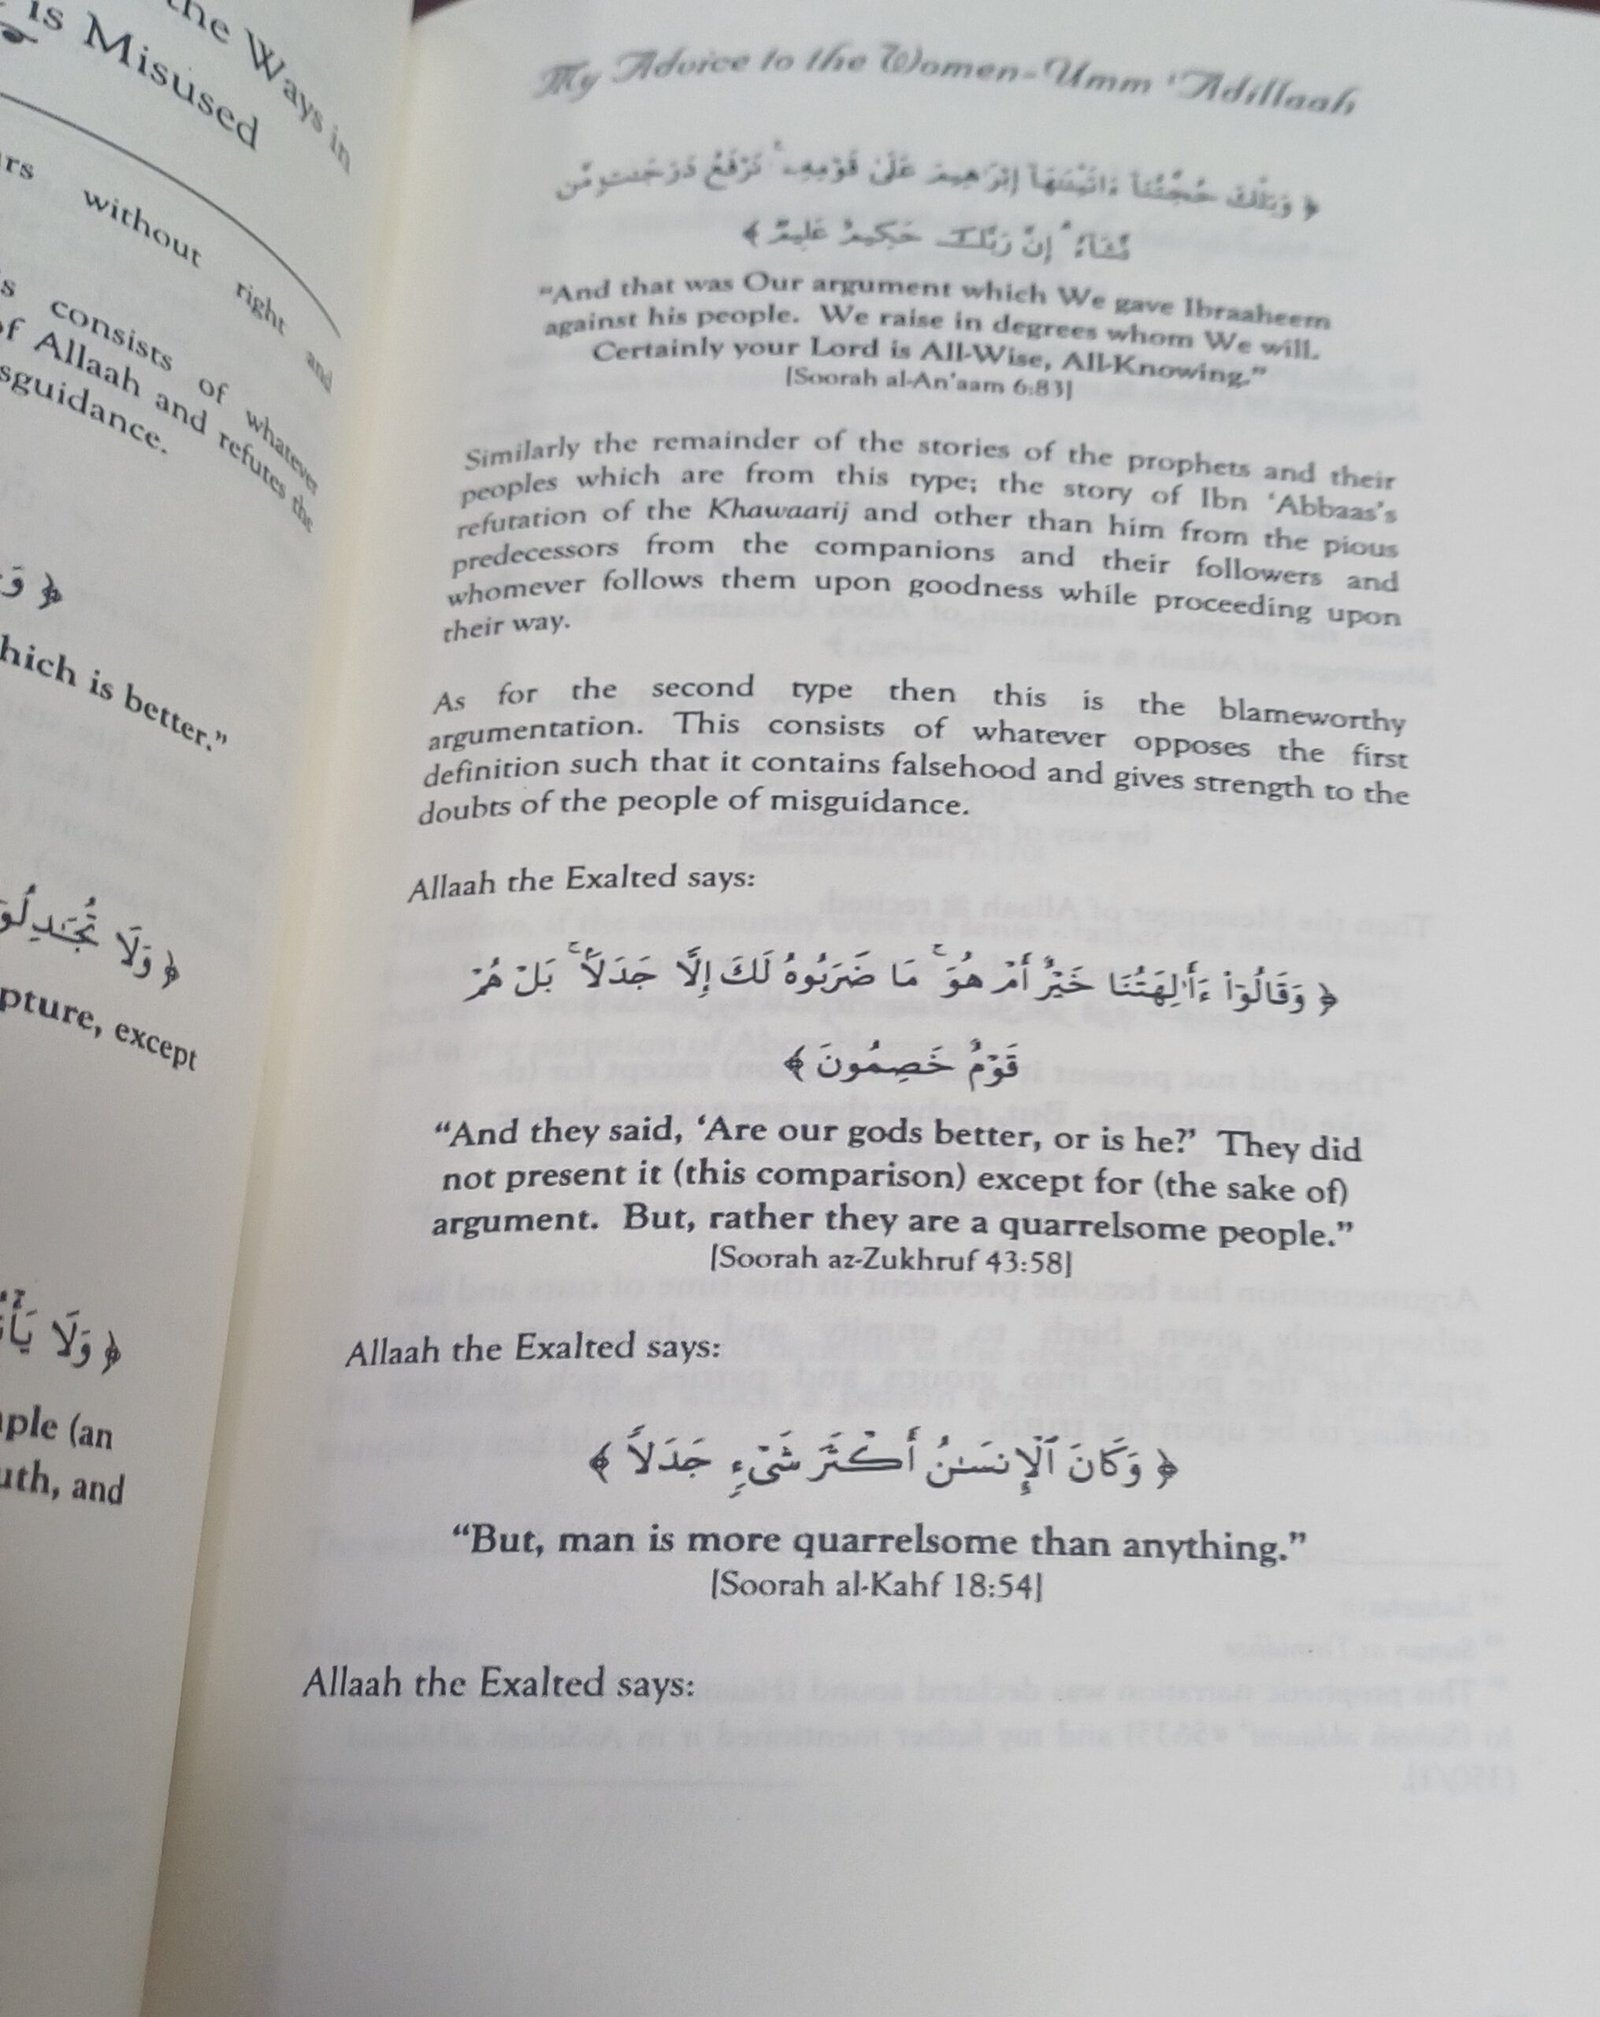 the Ways in
is Misused
rs without right and
s consists of whatever
of Allaah and refutes the
sguidance.
﴿ وَ
hich is better.”
﴿ وَلَا تُجَـٰدِلُو
pture, except
﴿ وَلَا يَأْ
ple (an
uth, and
My Advice to the Women-Umm ‘Adillaah
﴿ وَتِلْكَ حُجَّتُنَآ ءَاتَيْنَـٰهَآ إِبْرَٰهِيمَ عَلَىٰ قَوْمِهِۦ ۚ نَرْفَعُ دَرَجَـٰتٍ مَّن
نَّشَآءُ ۗ إِنَّ رَبَّكَ حَكِيمٌ عَلِيمٌ ﴾
“And that was Our argument which We gave Ibraaheem
against his people. We raise in degrees whom We will.
Certainly your Lord is All-Wise, All-Knowing.”
[Soorah al-An’aam 6:83]
Similarly the remainder of the stories of the prophets and their
peoples which are from this type; the story of Ibn ‘Abbaas’s
refutation of the Khawaarij and other than him from the pious
predecessors from the companions and their followers and
whomever follows them upon goodness while proceeding upon
their way.
As for the second type then this is the blameworthy
argumentation. This consists of whatever opposes the first
definition such that it contains falsehood and gives strength to the
doubts of the people of misguidance.
Allaah the Exalted says:
﴿ وَقَالُوٓا۟ ءَأَـٰلِهَتُنَا خَيْرٌ أَمْ هُوَ ۚ مَا ضَرَبُوهُ لَكَ إِلَّا جَدَلًۢا ۚ بَلْ هُمْ
قَوْمٌ خَصِمُونَ ﴾
“And they said, ‘Are our gods better, or is he?’ They did
not present it (this comparison) except for (the sake of)
argument. But, rather they are a quarrelsome people.”
[Soorah az-Zukhruf 43:58]
Allaah the Exalted says:
﴿ وَكَانَ ٱلْإِنسَـٰنُ أَكْثَرَ شَىْءٍ جَدَلًا ﴾
“But, man is more quarrelsome than anything.”
[Soorah al-Kahf 18:54]
Allaah the Exalted says: